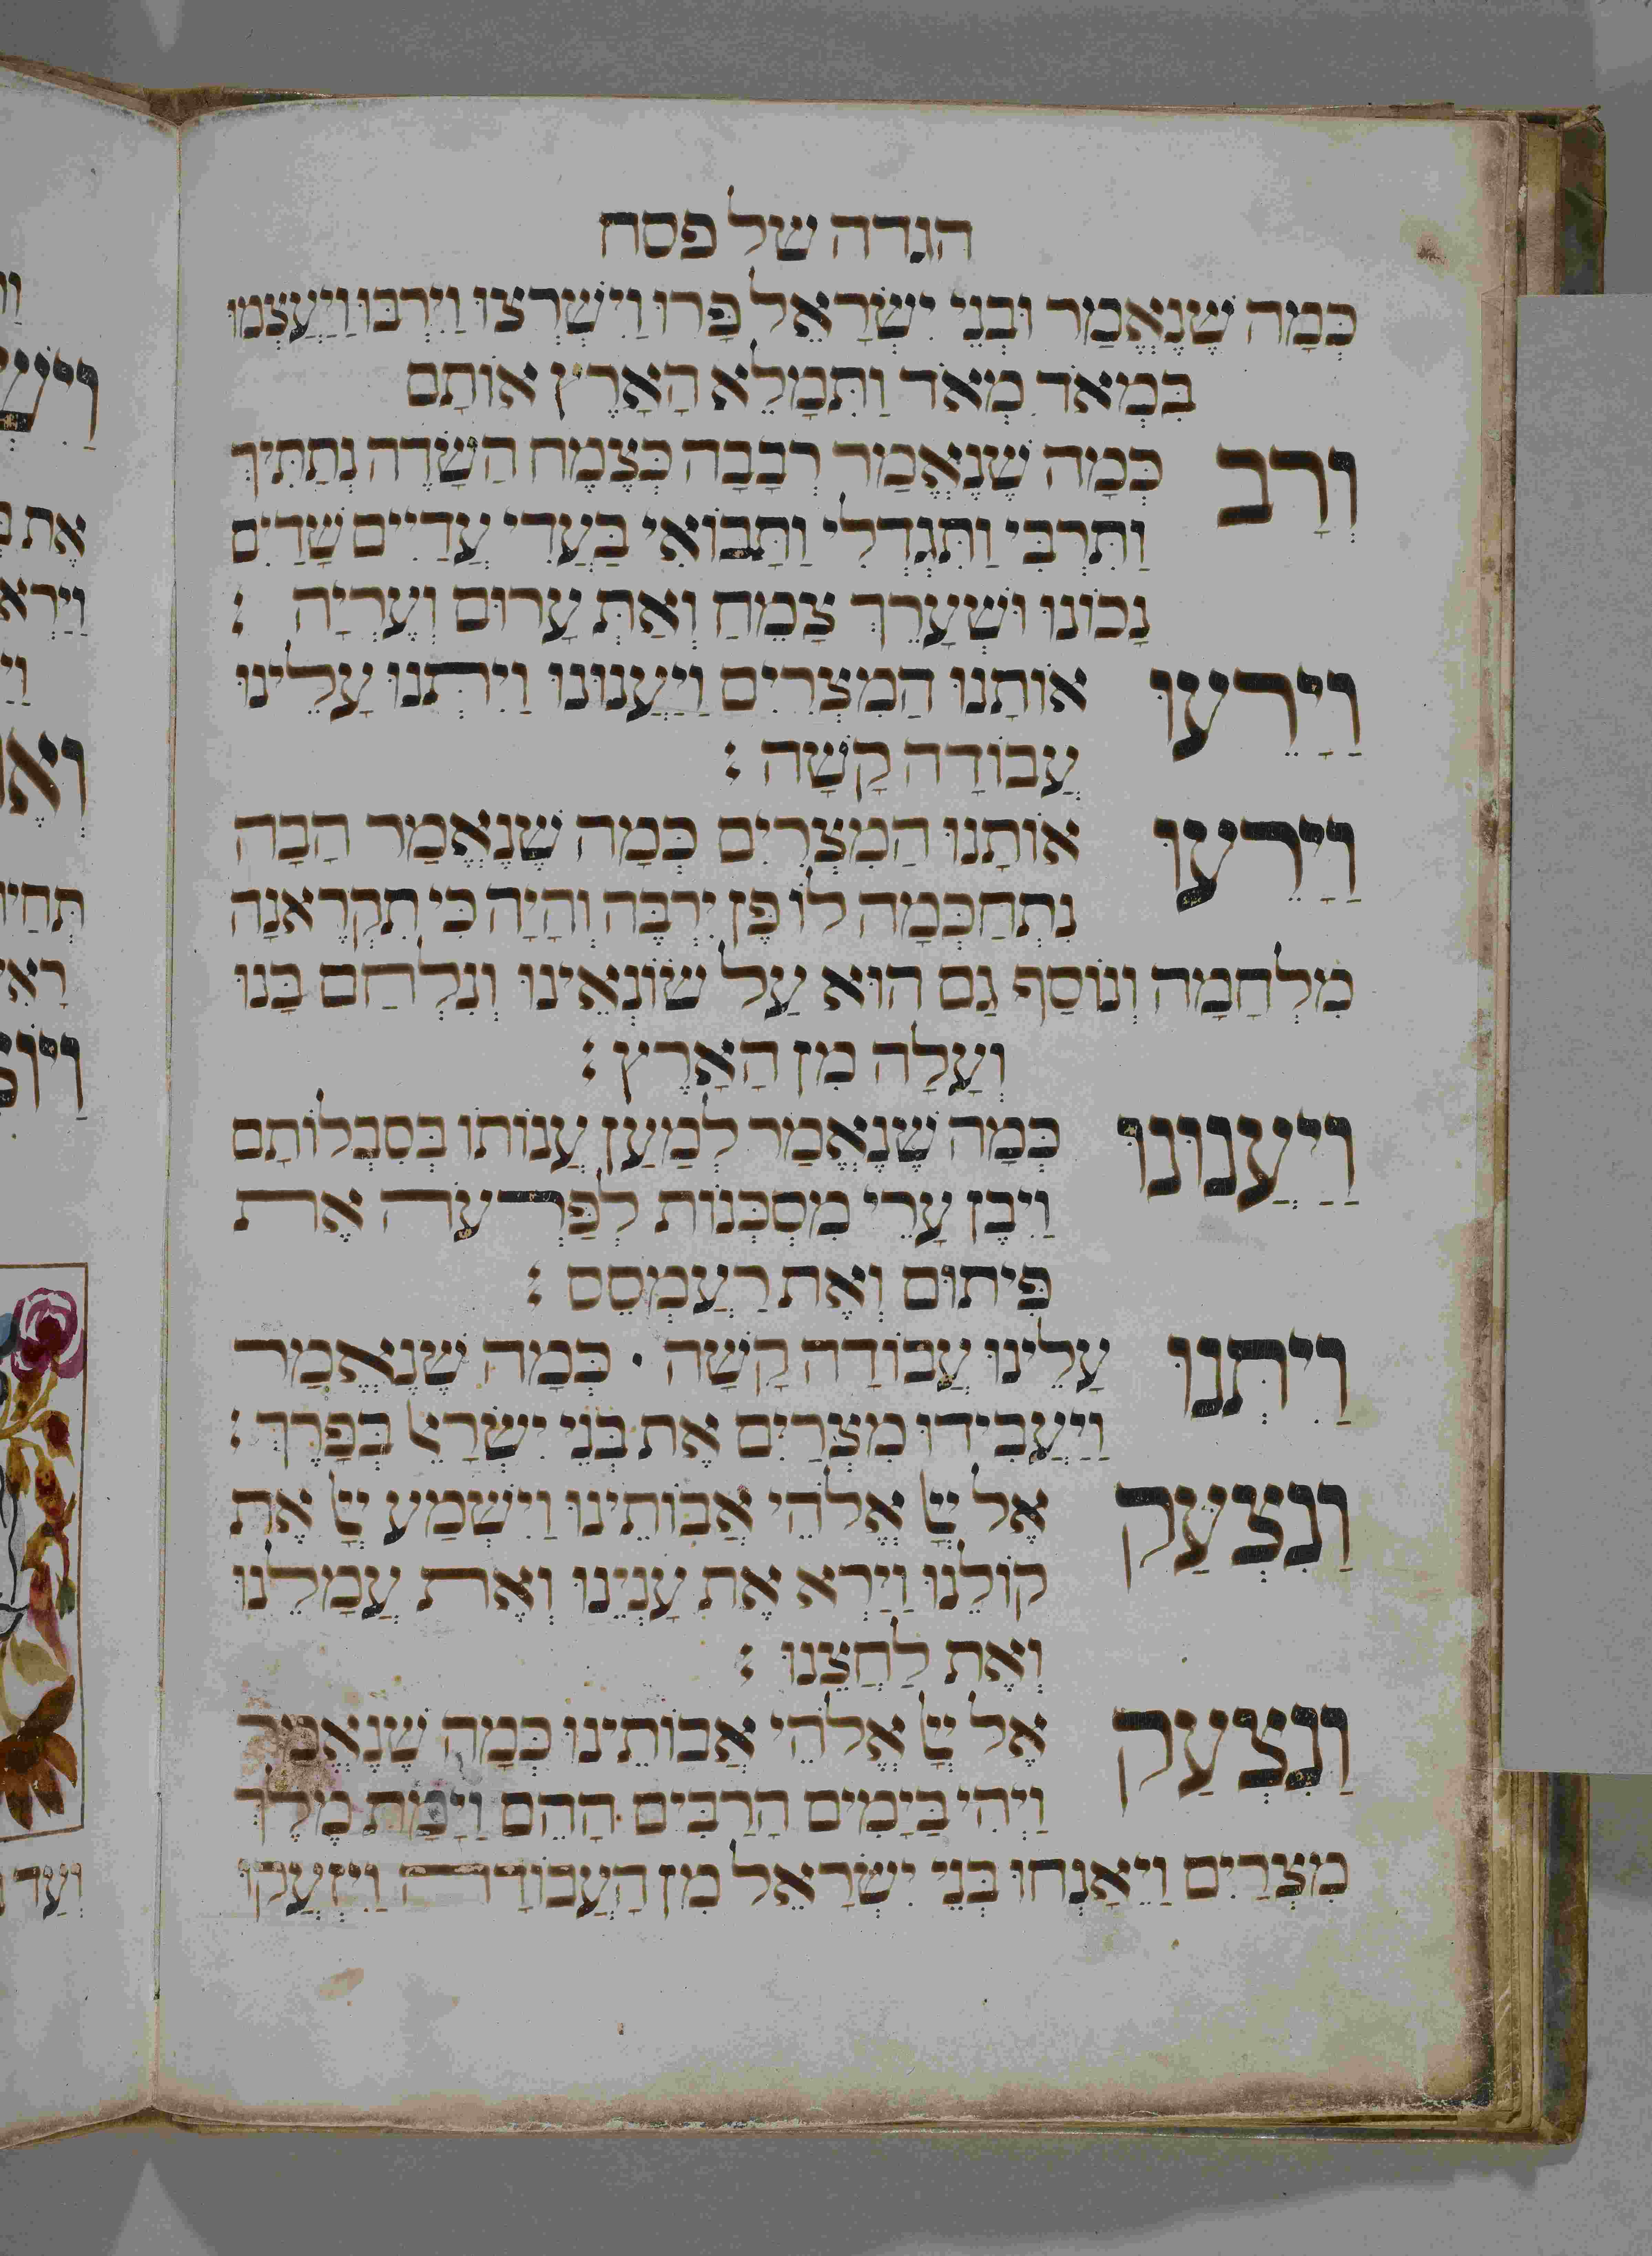 הגדה של פסח
כְּמָה שֶׁנֶּאֱמַר וּבְנֵי יִשְׂרָאֵל פָּרוּ וַיִשְׁרְצוּ וַיִרְבּוּ וַיַעַצְמוּ
בִּמְאֹד מְאֹד וַתִּמָלֵא הָאָרֶץ אוֹתָם
וָרָב כְּמָה שֶׁנֶּאֱמַר רְבָבָה כְּצֶמַח הַשָׂדֶה נְתַתִּיךְ
וַתִּרְבִּי וַתִּגְדְלִי וַתָּבוֹאִי בַּעֲדִי עֲדַיִים שָׁדַיִם
נָכוֹנוּ וּשְׂעָרֵךְ צָמֵחַ וְאַתְּ עָרוּם וְעֶרְיָה :
וַיָרֵעוּ אוֹתָנוּ הַמִצְרִים וַיְעַנוּנוּ וַיִתְּנוּ עָלֵינוּ
עֲבוֹדָה קָשָׁה :
וַיָרֵעוּ אוֹתָנוּ הַמִצְרִים כְּמָה שֶׁנֶּאֱמַר הָבָה
נִתְחַכְּמָה לוֹ פֶּן יִרְבֶּה וְהָיָה כִּי תִקְרֶאנָה
מִלְחָמָה וְנוֹסַף גַם הוּא עַל שׂוֹנְאֵינוּ וְנִלְחַם בָּנוּ
וְעָלָה מִן הָאָרֶץ :
וַיְעַנוּנוּ כְּמָה שֶׁנֶּאֱמַר לְמַעַן עַנוֹתוֹ בְּסִבְלוֹתָם
וַיִבֶן עָרֵי מִסְכְּנוֹת לְפַּרְעֹה אֶת
פִּיתוֹם וְאֶת רַעַמְסֵס :
וַיִתְּנוּ עָלֵינוּ עֲבוֹדָה קָשָׁה · כְּמָה שֶׁנֶּאֱמַר
וַיַעֲבִידוּ מִצְרַיִם אֶת בְּנֵי יִשְׂרָאֵל בְּפָרֶךְ :
וַנִצְעַק אֶל יְיָ אֱלֹהֵי אֲבוֹתֵינוּ וַיִשְׁמַע יְיָ אֶת
קוֹלֵנוּ וַיַרְא אֶת עָנְיֵנוּ וְאֶת עֲמָלֵנוּ
וְאֶת לַחֲצֵנוּ :
וַנִצְעַק אֶל יְיָ אֱלֹהֵי אֲבוֹתֵינוּ כְּמָה שֶׁנֶּאֱמַר
וַיְהִי בַּיָמִים הָרַבִּים הָהֵם וַיָמָת מֶלֶךְ
מִצְרַיִם וַיֵאָנְחוּ בְּנֵי יִשְׂרָאֵל מִן הָעֲבוֹדָה וַיִזְעָקוּ